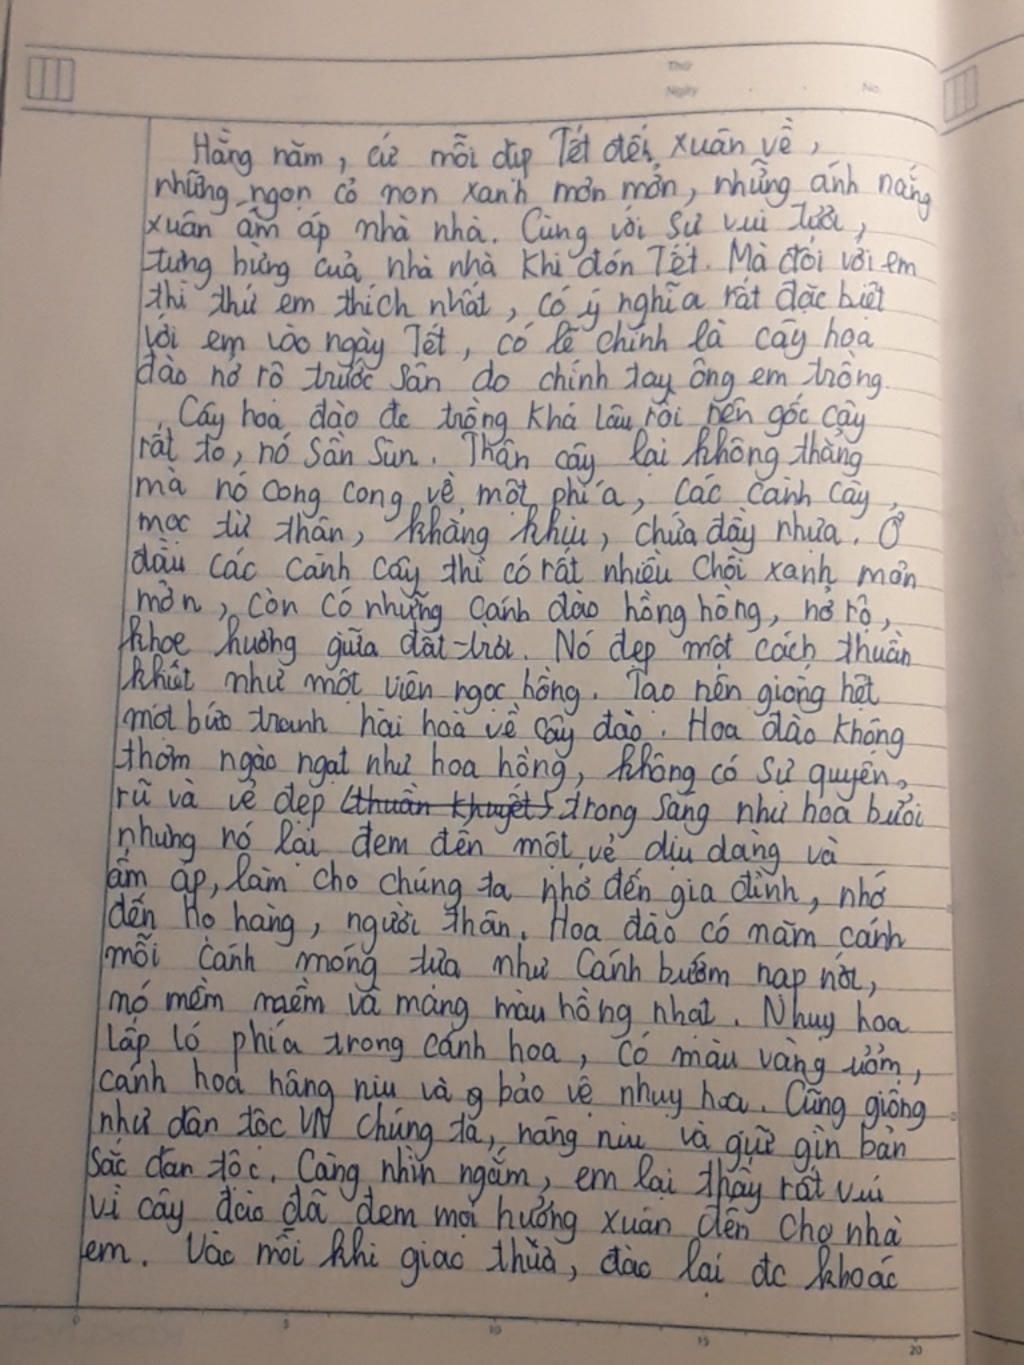 Thứ
Ngày No.
Hằng năm, cứ mỗi dịp Tết đến xuân về,
những ngọn cỏ non xanh mơn mởn, những ánh nắng
xuân ấm áp nhà nhà. Cùng với sự vui tươi,
tưng bừng của nhà nhà khi đón Tết. Mà đối với em
thì thứ em thích nhất, có ý nghĩa rất đặc biệt
với em vào ngày Tết, có lẽ chính là cây hoa
đào nở rộ trước sân do chính tay ông em trồng.
Cây hoa đào đc trồng khá lâu rồi nên gốc cây
rất to, nó sần sùn. Thân cây lại không thẳng
mà nó cong cong về một phía, các cành cây
mọc từ thân, khẳng khiu, chứa đầy nhựa. Ở
đầu các cành cây thì có rất nhiều chồi xanh mơn
mởn, còn có những cánh đào hồng hồng, nở rộ,
khoe hương giữa đất trời. Nó đẹp một cách thuần
khiết như một viên ngọc hồng. Tạo nên giống hệt
một bức tranh hài hoà về cây đào. Hoa đào không
thơm ngào ngạt như hoa hồng, không có sự quyến
rũ và vẻ đẹp (thuần khuyết) trong sáng như hoa bưởi
nhưng nó lại đem đến một vẻ dịu dàng và
ấm áp, làm cho chúng ta nhớ đến gia đình, nhớ
đến họ hàng, người thân. Hoa đào có năm cánh
mỗi cánh mỏng tựa như cánh bướm nạp nớt,
nó mềm mềm và mang màu hồng nhạt. Nhuỵ hoa
lấp ló phía trong cánh hoa, có màu vàng ươm,
cánh hoa nâng niu và bảo vệ nhuỵ hoa. Cũng giống
như dân tộc VN chúng ta, nâng niu và giữ gìn bản
sắc dân tộc. Càng nhìn ngắm, em lại thấy rất vui
vì cây đào đã đem mọi hương xuân đến cho nhà
em. Vào mỗi khi giao thừa, đào lại đc khoác
0 5 10 15 20